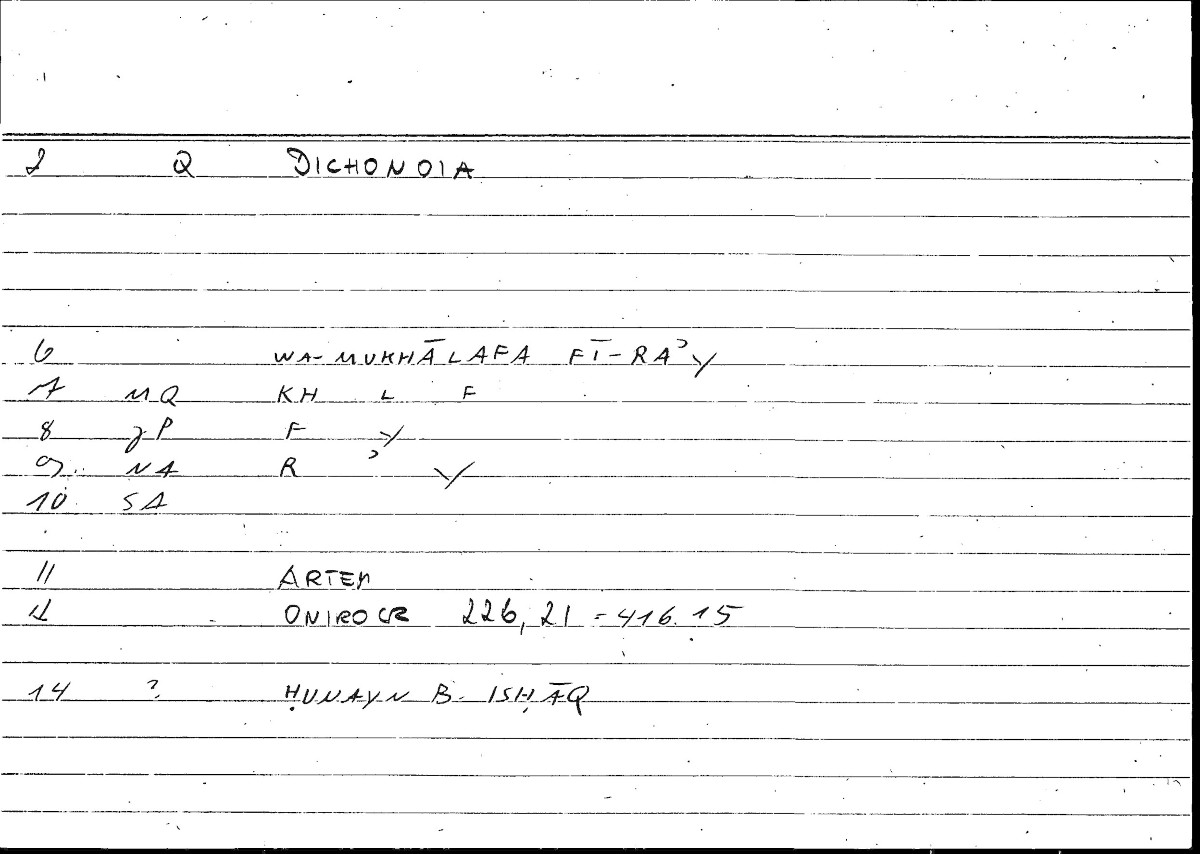 2 Q DICHONOIA
6 WA-MUKHĀLAFA FĪ-RAʾY
7 MQ KH L F
8 JP F Y
9 NA R ʾ Y
10 SA
11 ARTEM
12 ONIROCR 226,21 = 416.15
14 ? ḤUNAYN B. ISḤĀQ